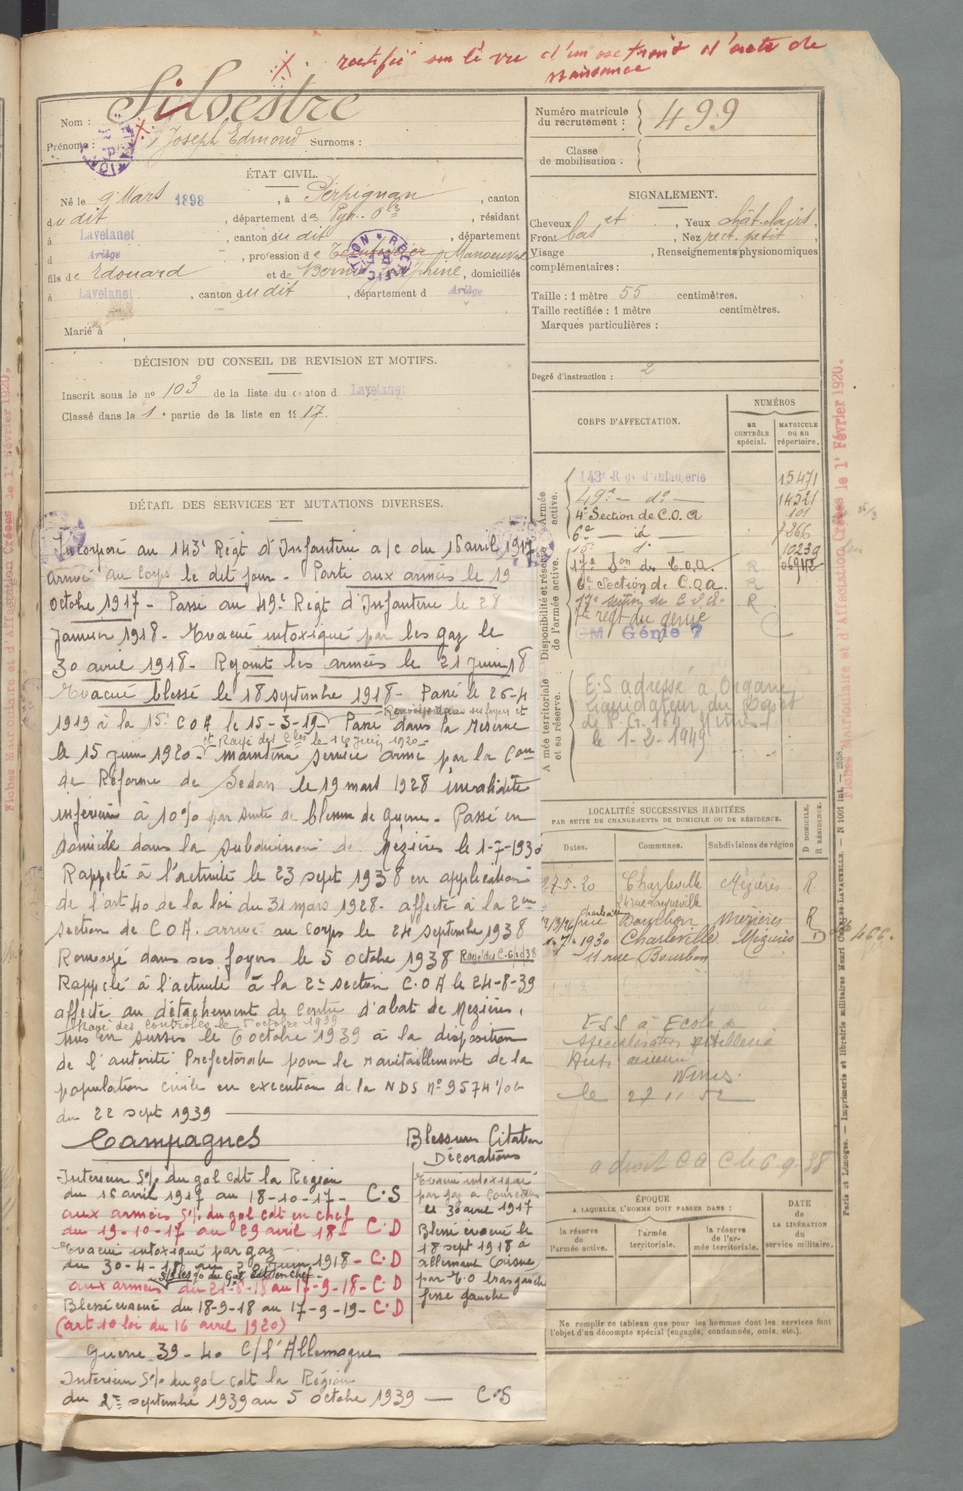 X. rectifié sur le vu d'un extrait d'acte de
naissance
Nom : Silvestre
Prénoms : Joseph Edmond Surnoms :
Numéro matricule
du recrutement : 499
Classe
de mobilisation :
ÉTAT CIVIL.
Né le 9 Mars 1898, à Perpignan, canton
du dit, département des Pyr. Oles, résidant
à Lavelanet, canton du dit, département
d Ariège, profession de Manoeuvre
fils de Edouard et de Joséphine, domiciliés
à Lavelanet, canton du dit, département d Ariège
Marié à
SIGNALEMENT.
Cheveux et, Yeux chât. clairs,
Front bas, Nez rect. petit,
Visage, Renseignements physionomiques
complémentaires :
Taille : 1 mètre 55 centimètres.
Taille rectifiée : 1 mètre centimètres.
Marques particulières :
Degré d'instruction : 2
DÉCISION DU CONSEIL DE REVISION ET MOTIFS.
Inscrit sous le no 103 de la liste du canton d Lavelanet
Classé dans la 1e partie de la liste en 1917.
DÉTAIL DES SERVICES ET MUTATIONS DIVERSES.
Incorporé au 143e Régt d'Infanterie a/c du 16 avril 1917
arrivé au corps le dit jour. Parti aux armées le 19
octobre 1917 - Passé au 49e Régt d'Infanterie le 28
Janvier 1918 - Evacué intoxiqué par les gaz le
30 avril 1918 - Rejoint les armées le 21 juin 18
Evacué blessé le 18 septembre 1918 - Passé le 26-4
1919 à la 15e C.O.A. le 15-3-19 Passé dans la réserve
et Rayé des Cles le 16 Juin 1920 -
le 15 juin 1920 - maintenu service armé par la Con
de Réforme de Sedan le 19 mars 1928 invalidité
inférieure à 10% par suite de blessure de guerre. Passé en
domicile dans la subdivision de Mézières le 1-7-1930
Rappelé à l'activité le 23 sept 1938 en application
de l'art 40 de la loi du 31 mars 1928. affecté à la 2em
section de C.O.A. arrivé au corps le 24 septembre 1938
Renvoyé dans ses foyers le 5 octobre 1938
Rappelé à l'activité à la 2e section C.O.A le 24-8-39
affecté au détachement de Centre d'abat de Mezières,
Rayé des controles le 5 octobre 1939
mis en sursis le 6 octobre 1939 à la disposition
de l'autorité Prefectorale pour le ravitaillement de la
population civile en execution de la NDS No 9574
du 22 sept 1939
Campagnes
Interieur S% du gal cdt la Region
du 16 avril 1917 au 18-10-17 - C.S
aux armées S% du gal cdt en chef
du 19-10-17 au 29 avril 18 C.D
Evacué intoxiqué par gaz
du 30-4-18 au 20 Juin 1918 - C.D
S/les % du Gal Cdt en chef -
aux armées du 21-6-18 au 17-9-18 - C.D
Blessé evacué du 18-9-18 au 17-9-19 - C.D
(art 10 loi du 16 avril 1920)
Guerre 39-40 C/l'Allemagne
Interieur S% du gal cdt la Région
du 2 septembre 1939 au 5 octobre 1939 - C.S
Blessures Citation
Décorations
Evacué intoxiqué
par gaz à
le 30 avril 1917
Blessé évacué le
18 sept 1918 à
allemant (Aisne)
par E.O bras gauche
fesse gauche
CORPS D'AFFECTATION.
NUMÉROS
au CONTRÔLE spécial.
MATRICULE ou au répertoire.
Armée active.
Disponibilité et réserve de l'armée active.
Armée territoriale et sa réserve.
143e R. d'Infanterie 15471
49e - do - 14521
4e Section de C.O.A 101
6e - id - 7266
10239
17e Son de C.O.A. R
6e Section de C.O.A. R
17e section de C.O.A. R
1er régt du génie
CM Génie 7
E.S adressé à Organe
liquidateur du Dépôt
de P.G. Nimes
le 1-2-1949
LOCALITÉS SUCCESSIVES HABITÉES
PAR SUITE DE CHANGEMENTS DE DOMICILE OU DE RÉSIDENCE.
Dates. Communes. Subdivisions de région
D DOMICILE. R RÉSIDENCE.
27-5-20 Charleville Mézières R.
rue Bourbon Mezières R
1-7-1930 Charleville Mézières D
11 rue Bourbon
466.
ESS à Ecole de
Spécialisation Artillerie
Anti aérienne
Nîmes.
le 27 11 52
ÉPOQUE
A LAQUELLE L'HOMME DOIT PASSER DANS :
la réserve de l'armée active.
l'armée territoriale.
la réserve de l'armée territoriale.
DATE de LA LIBÉRATION du service militaire.
Ne remplir ce tableau que pour les hommes dont les services font
l'objet d'un décompte spécial (engagés, condamnés, omis, etc.).
Fiches Matriculaire et d'Affectation Créées le 1er Février 1920.
Paris et Limoges. — Imprimerie et librairie militaires Henri CHARLES-LAVAUZELLE.